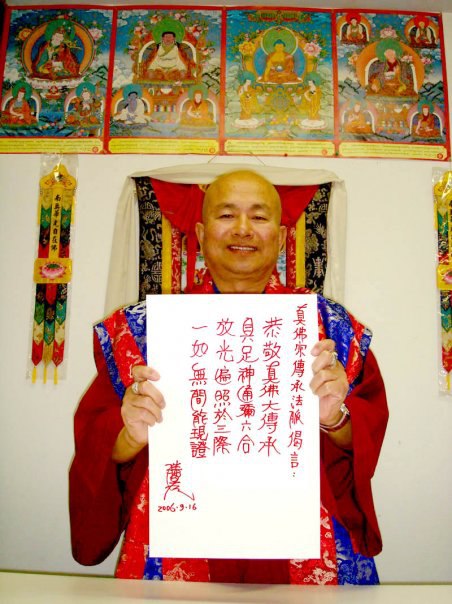 真佛宗傳承法脈偈言:
恭敬真佛大傳承
具足神通彌六合
放光遍照於三際
一如無間能現證
2006.9.16
南無華光自在佛